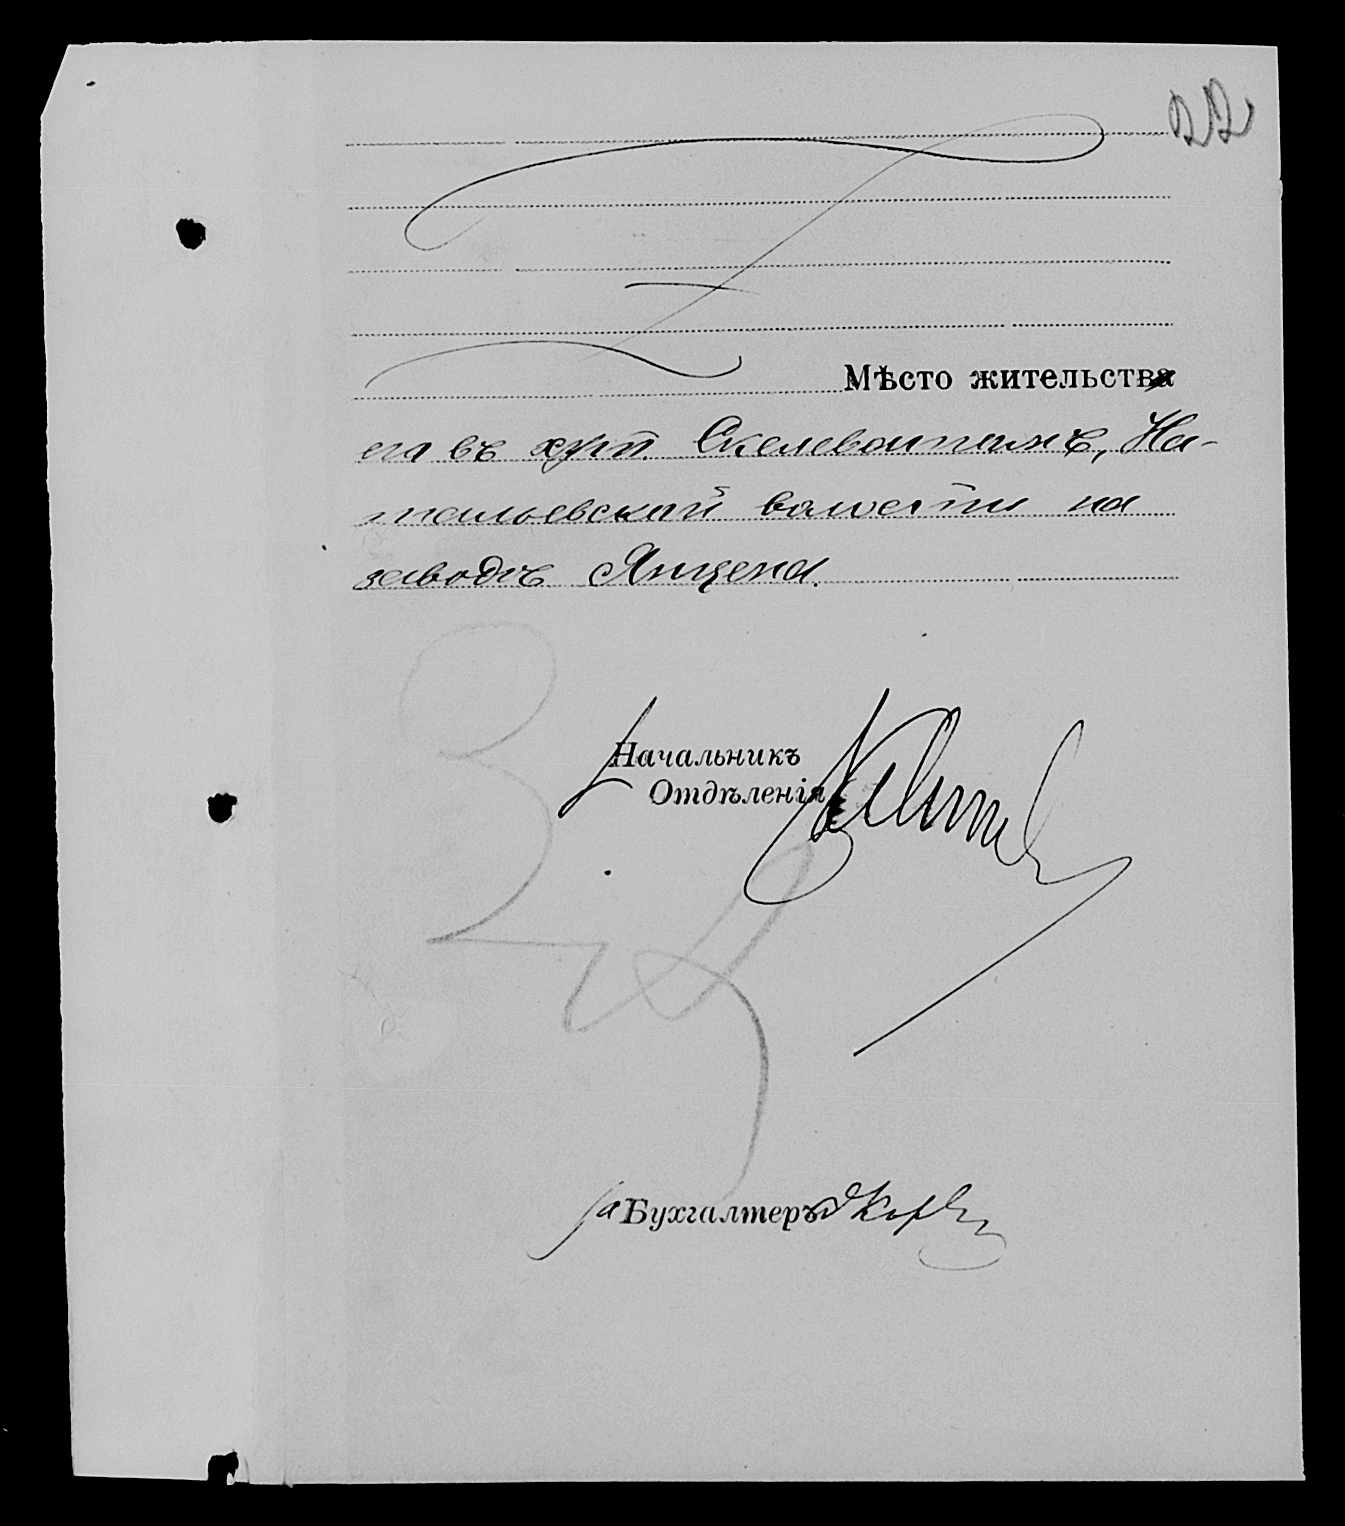 22
Мѣсто жительства
его въ хут. Скелеватомъ, На-
тальевской волости на
заводѣ Янцена.
Начальникъ
Отдѣленія
За Бухгалтеръ